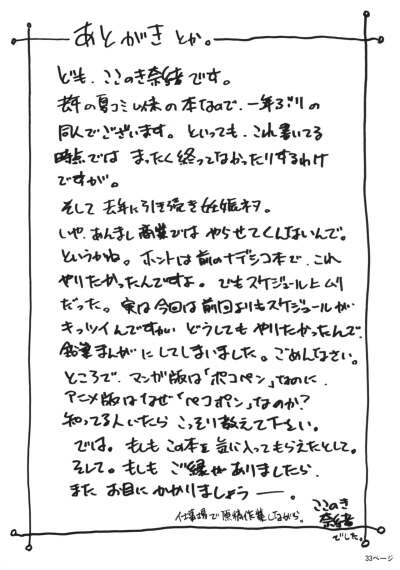 あとがきとか。
ども、ここのき奈緒です。
去年の夏コミ以来の本なので、一年ぶりの
同人でございます。といっても、これ書いてる
時点では まったく終ってなかったりするわけ
ですが。
そして去年に引き続き妊娠ネタ。
いや、あんまし商業ではやらせてくんないんで。
というかね。ホントは前のナデシコ本で、これ
やりたかったんですよ。でもスケジュール上ムリ
だった。実は今回は前回よりもスケジュールが
キッツイんですがどうしてもやりたかったんで、
鉛筆まんがにしてしまいました。ごめんなさい。
ところで、マンガ版は「ポコペン」なのに、
アニメ版はなぜ「ペコポン」なのか?
知ってる人いたら こっそり教えて下さい。
では。もしもこの本を気に入ってもらえたとして。
そして。もしも ご縁がありましたら、
また お目にかかりましょうー。
仕事場で原稿作業しながら。
ここのき
奈緒
でした。
33ページ